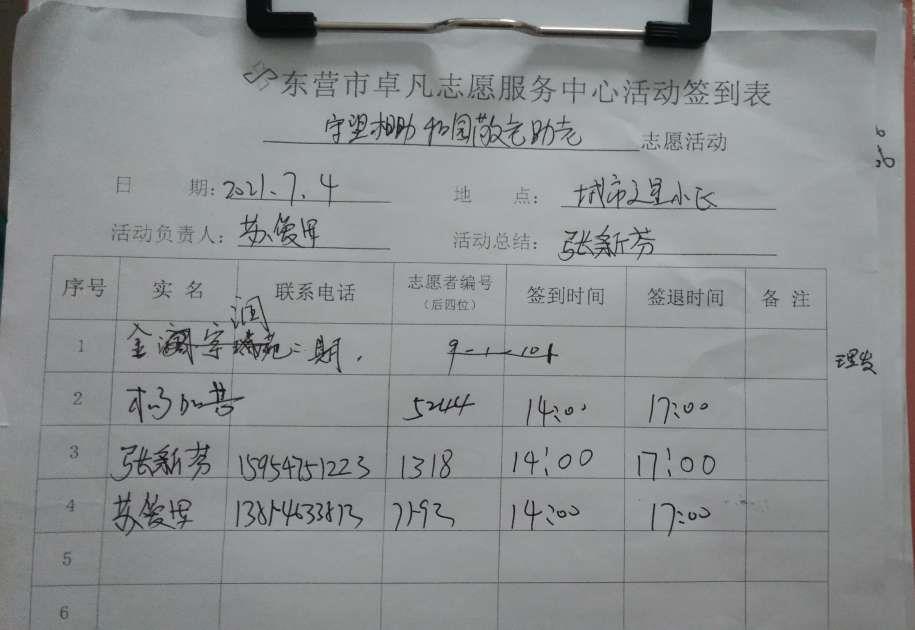 东营市卓凡志愿服务中心活动签到表
守望相助 和园敬老助老 志愿活动
日 期: 2021.7.4 地 点: 城市之星小区
活动负责人: 苏俊 活动总结: 张新芬
序号 实 名 联系电话 志愿者编号 (后四位) 签到时间 签退时间 备 注
润
1 金 二期. 9-1-101 理发
2 杨加 5244 14:00 17:00
3 张新芬 15954751223 1318 14:00 17:00
4 苏俊 14:00 17:00
5
6